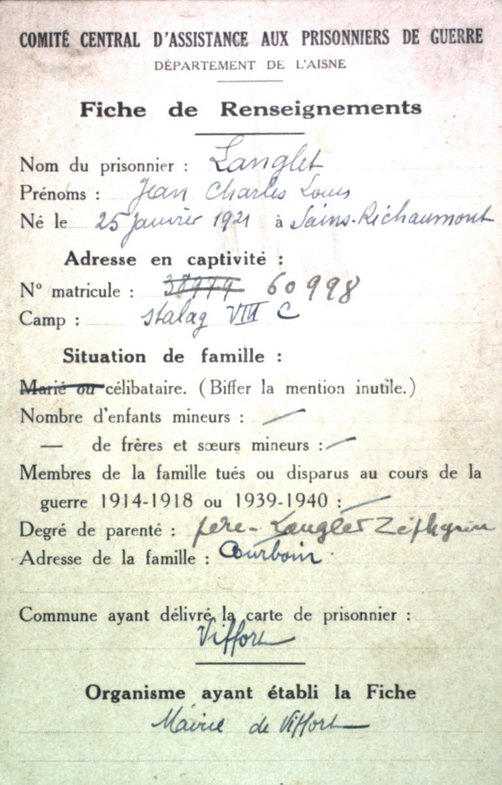 COMITÉ CENTRAL D'ASSISTANCE AUX PRISONNIERS DE GUERRE
DÉPARTEMENT DE L'AISNE
Fiche de Renseignements
Nom du prisonnier : Langlet
Prénoms : Jean Charles Louis
Né le 25 Janvier 1921 à Sains-Richaumont
Adresse en captivité :
N° matricule : 38979 60998
Camp : Stalag VIII C
Situation de famille :
Marié ou célibataire. (Biffer la mention inutile.)
Nombre d'enfants mineurs : —
— de frères et sœurs mineurs : —
Membres de la famille tués ou disparus au cours de la
guerre 1914-1918 ou 1939-1940 : —
Degré de parenté : père - Langlet Zéphyrin
Adresse de la famille : Courboin
Commune ayant délivré la carte de prisonnier :
Viffort
Organisme ayant établi la Fiche
Mairie de Viffort